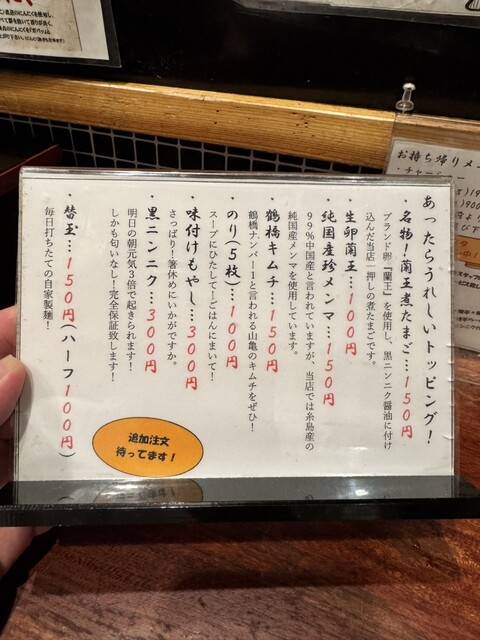 あったらうれしいトッピング!
・名物!蘭王煮たまご…150円
ブランド卵『蘭王』を使用し、黒ニンニク醤油に付け
込んだ当店一押しの煮たまごです。
・生卵蘭王…100円
・純国産珍メンマ…150円
99%中国産と言われていますが、当店では糸島産の
純国産メンマを使用しています。
・鶴橋キムチ…150円
鶴橋ナンバー1と言われる山亀のキムチをぜひ!
・のり(5枚)…100円
スープにひたしてーごはんにまいて!
・味付けもやし…300円
さっぱり!箸休めにいかがですか。
・黒ニンニク…300円
明日の朝元気3倍で起きられます!
しかも匂いなし!完全保証致します!
・替玉…150円(ハーフ100円)
毎日打ちたての自家製麺!
追加注文
待ってます!
お持ち帰りメ